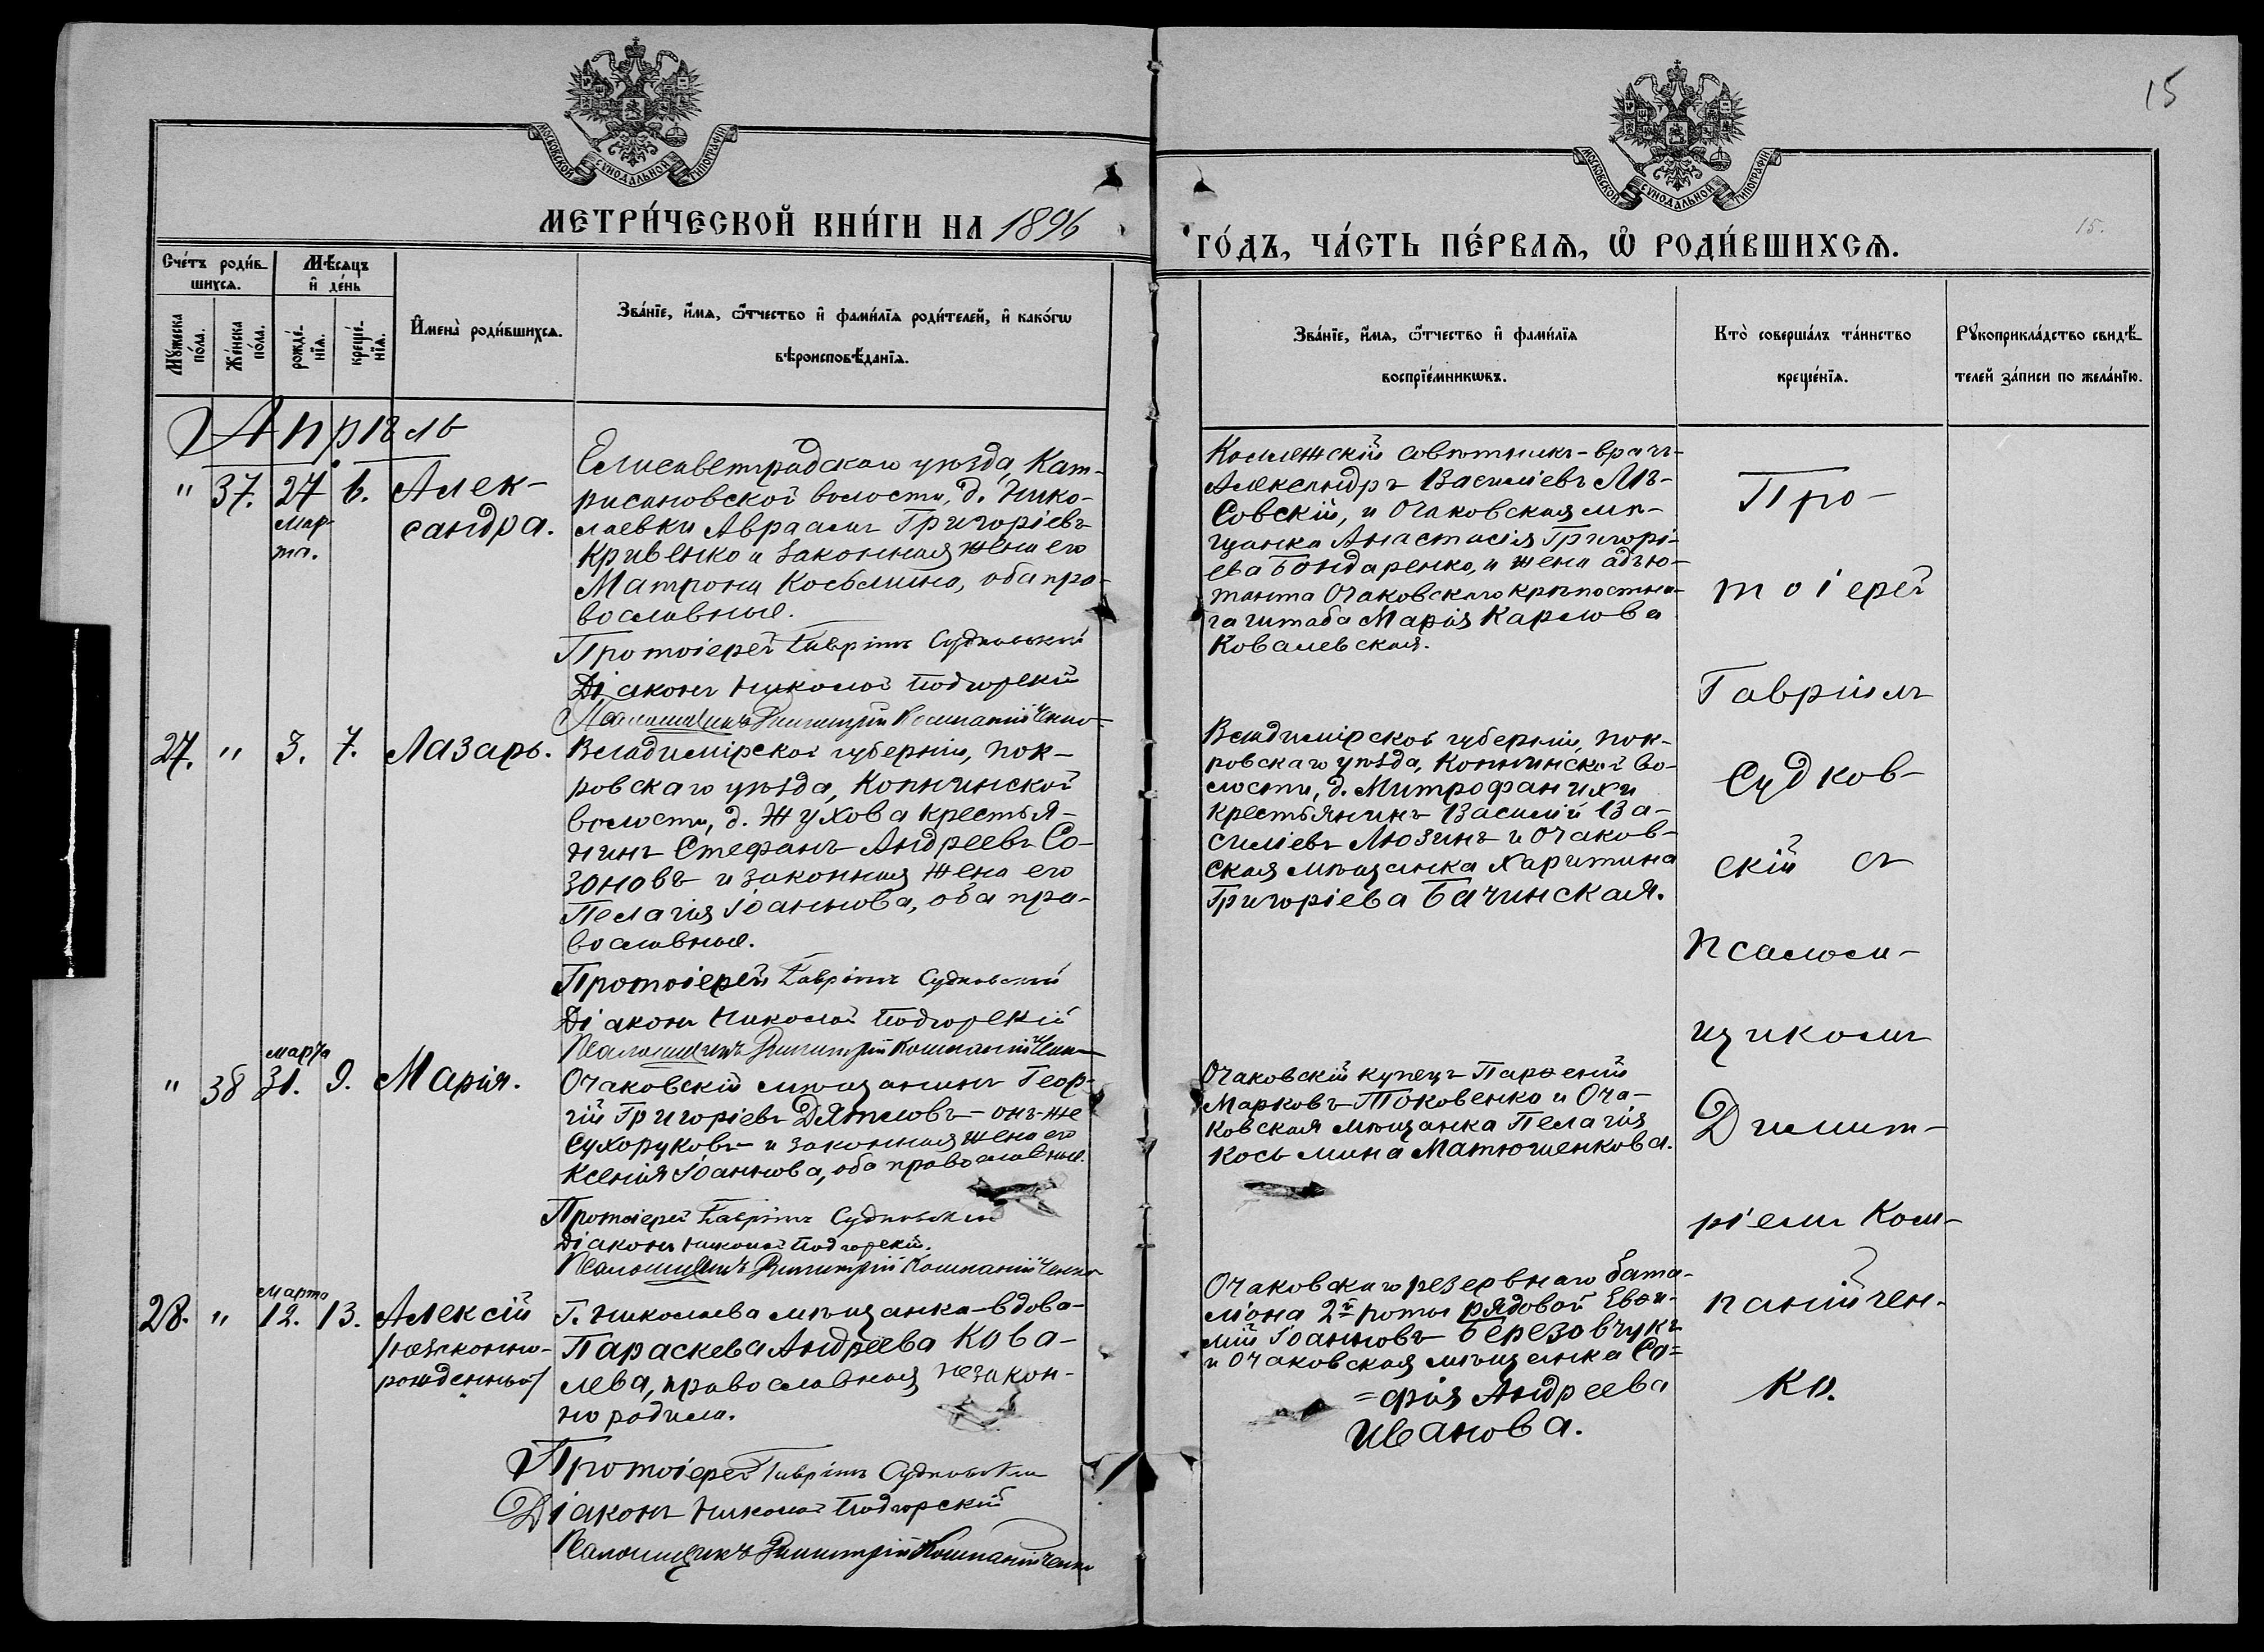 15
МОСКОВСКОЙ СУНОДАЛЬНОЙ ТИПОГРАФІИ
МОСКОВСКОЙ СУНОДАЛЬНОЙ ТИПОГРАФІИ
МЕТРИ́ЧЕСКОЙ КНИ́ГИ НА 1896
ГО́ДЪ, ЧА́СТЬ ПЕ́РВАѦ, Ѡ РОДИ́ВШИХСѦ.
15.
Сче́тъ роди́в-
шихсѧ.
Мѣсѧцъ
и де́нь
Мꙋ́жеска
по́ла.
Же́нска
по́ла.
рожде́-
нїѧ.
креще́-
нїѧ.
Имена̀ роди́вшихсѧ.
Зва́нїе, и́мѧ, ѻ́тчество и фами́лїѧ роди́телей, и како́гѡ
вѣроисповѣ́данїѧ.
Зва́нїе, и́мѧ, ѻ́тчество и фами́лїѧ
воспрїе́мникѡвъ.
Кто̀ соверша́лъ та́инство
креще́нїѧ.
Рꙋкоприкла́дство свидѣ́-
телей за́писи по жела́нїю.
Апрѣль
" 37. 27 6. Алек-
Мар-
та.
сандра.
Елисаветградскаго уѣзда, Кат-
рисановской волости, д. Нико-
лаевки Авраамъ Григоріевъ
Кривенко и законная жена его
Матрона Косьмина, оба пра-
вославные.
Протоіерей Гавріилъ Судковскій
Діаконъ Николай Подгорскій
Псаломщикъ Димитрій Компанійченко
Коллежскій совѣтникъ-врачъ
Александръ Василіевъ Лѣ-
совскій, и Очаковская мѣ-
щанка Анастасія Григорі-
ева Бондаренко, и жена адъю-
танта Очаковскаго крѣпостна-
га штаба Марія Карлова
Ковалевская.
27. " 3. 7. Лазарь.
Владимірской губерніи, Пок-
ровскаго уѣзда, Копнинской
волости, д. Жухова крестья-
нинъ Стефанъ Андреевъ Со-
зоновъ и законная жена его
Пелагія Іоаннова, оба пра-
вославные.
Протоіерей Гавріилъ Судковскій
Діаконъ Николай Подгорскій
Псаломщикъ Димитрій Компанійченко
Владимірской губерніи, Пок-
ровскаго уѣзда, Копнинской во-
лости, д. Митрофанихи
крестьянинъ Василій Ва-
силіевъ Люзинъ и Очаков-
ская мѣщанка Харитина
Григоріева Бачинская.
" 38 марта 31. 9. Марія.
Очаковскій мѣщанинъ Геор-
гій Григоріевъ Дятловъ-онъ-же
Сухоруковъ и законная жена его
Ксенія Іоаннова, оба православные.
Протоіерей Гавріилъ Судковскій
Діаконъ Николай Подгорскій.
Псаломщикъ Димитрій Компанійченко
Очаковскій купецъ Парѳеній
Марковъ Токовенко и Оча-
ковская мѣщанка Пелагія
Косьмина Матюшенкова.
28. " Марта 12. 13. Алексій
/незаконно-
рожденный/
Г. Николаева мѣщанка-вдова
Параскева Андреева Кова-
лева, православная незакон-
но родила.
Протоіерей Гавріилъ Судковскій
Діаконъ Николай Подгорскій
Псаломщикъ Димитрій Компанійченко
Очаковскаго резервнаго бата-
ліона 2й роты рядовой Евѳи-
мій Іоанновъ Березовчукъ
и Очаковская мѣщанка Со=
=фія Андреева
Иванова.
Про-
тоіерей
Гавріилъ
Судков-
скій съ
псалом-
щикомъ
Димит-
ріемъ Ком-
панійчен-
ко.